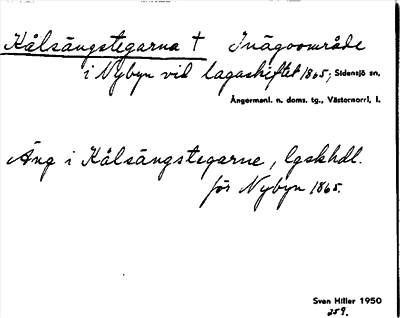 Kålsängstegarna † Inägoområde
i Nybyn vid lagaskiftet 1865; Sidensjö sn,
Ångermanl. n. doms. tg., Västernorrl. l.
Äng i Kålsängstegarne, lgskhdl.
för Nybyn 1865.
Sven Hiller 1950
259.